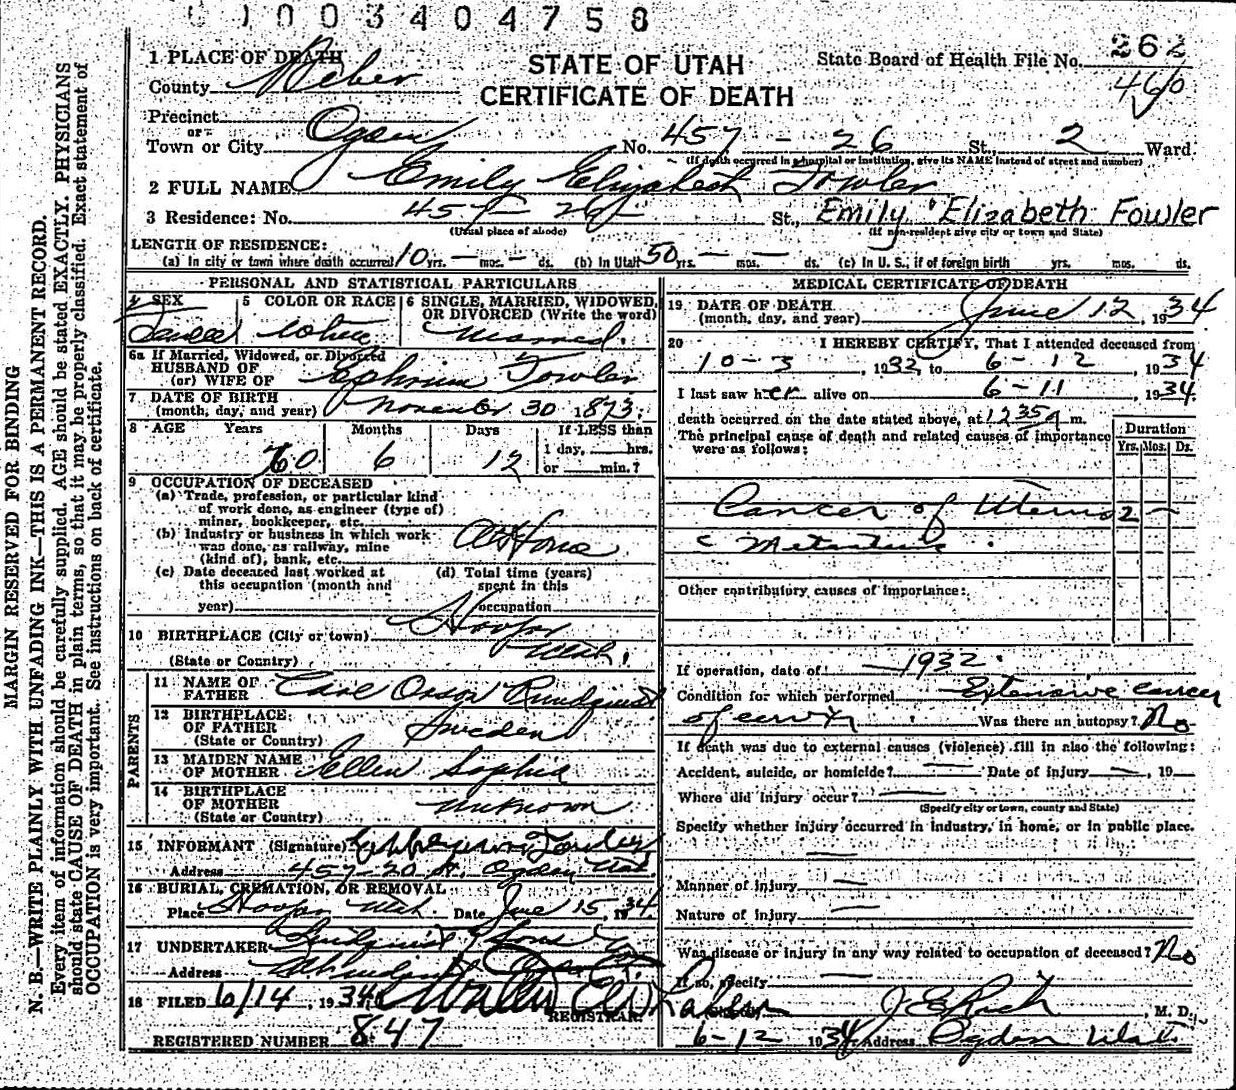 0 1 0 0 3 4 0 4 7 5 8
STATE OF UTAH
CERTIFICATE OF DEATH
State Board of Health File No. 262
460
1 PLACE OF DEATH
County Weber
Precinct
or
Town or City Ogden No. 457 - 26 St., 2 Ward.
(If death occurred in a hospital or institution, give its NAME instead of street and number)
2 FULL NAME Emily Elizabeth Fowler
3 Residence: No. 457 - 26 St., Emily Elizabeth Fowler
(Usual place of abode) (If non-resident give city or town and State)
LENGTH OF RESIDENCE:
(a) In city or town where death occurred 10 yrs. — mos. — ds. (b) In Utah 50 yrs. — mos. — ds. (c) In U. S., if of foreign birth yrs. mos. ds.
MARGIN RESERVED FOR BINDING
N. B.—WRITE PLAINLY WITH UNFADING INK—THIS IS A PERMANENT RECORD.
Every item of information should be carefully supplied. AGE should be stated EXACTLY. PHYSICIANS
should state CAUSE OF DEATH in plain terms, so that it may be properly classified. Exact statement of
OCCUPATION is very important. See instructions on back of certificate.
PERSONAL AND STATISTICAL PARTICULARS
4 SEX 5 COLOR OR RACE 6 SINGLE, MARRIED, WIDOWED,
OR DIVORCED (Write the word)
Female White Married.
6a If Married, Widowed, or Divorced
HUSBAND OF
(or) WIFE OF Ephriam Fowler
7 DATE OF BIRTH
(month, day, and year) November 30 1873.
8 AGE Years Months Days If LESS than
1 day, hrs.
60 6 12 or min.?
9 OCCUPATION OF DECEASED
(a) Trade, profession, or particular kind
of work done, as engineer (type of)
miner, bookkeeper, etc.
(b) Industry or business in which work
was done, as railway, mine
(kind of), bank, etc. At Home
(c) Date deceased last worked at
this occupation (month and
year)
(d) Total time (years)
spent in this
occupation
10 BIRTHPLACE (City or town) Hooper
(State or Country) Utah.
PARENTS
11 NAME OF
FATHER Carl Orson Rundquist
12 BIRTHPLACE
OF FATHER
(State or Country) Sweden
13 MAIDEN NAME
OF MOTHER Ellen Sophia
14 BIRTHPLACE
OF MOTHER
(State or Country) Unknown
15 INFORMANT (Signature) Fowler
Address 457-20 St. Ogden Utah
16 BURIAL, CREMATION, OR REMOVAL
Place Hooper Utah. Date June 15, 1934.
17 UNDERTAKER Lindquist & Sons
Address Ogden
18 FILED 6/14, 1934
REGISTRAR.
REGISTERED NUMBER 847
MEDICAL CERTIFICATE OF DEATH
19 DATE OF DEATH
(month, day, and year) June 12, 1934
20 I HEREBY CERTIFY, That I attended deceased from
10-3, 1932, to 6-12, 1934
I last saw her alive on 6-11, 1934.
death occurred on the date stated above, at 12 35 a m.
The principal cause of death and related causes of importance
were as follows:
Duration
Yrs. Mos. Ds.
Cancer of Uterus 2 —
c Metastasis.
Other contributory causes of importance:
If operation, date of 1932.
Condition for which performed Extensive cancer
of cervix Was there an autopsy? No
If death was due to external causes (violence) fill in also the following:
Accident, suicide, or homicide? — Date of injury —, 19—
Where did injury occur? —
(Specify city or town, county and State)
Specify whether injury occurred in industry, in home, or in public place.
—
Manner of injury —
Nature of injury —
Was disease or injury in any way related to occupation of deceased? No
If so, specify —
J E Rich, M. D.
6-12 1934 Address Ogden Utah.